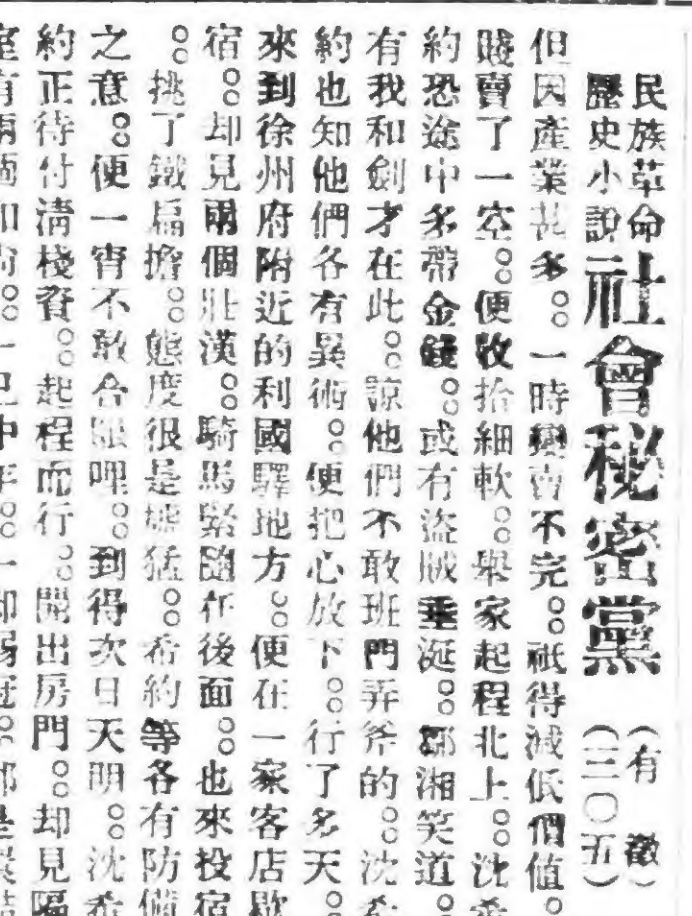 民族革命
歷史小說
社會秘密黨
（有徵）
（三〇五）
但因產業甚多。。一時變賣不完。。祇得減低價值。
賤賣了一空。。便收拾細軟。。舉家起程北上。。沈希
約恐途中多帶金錢。。或有盜賊垂涎。。鄒湘笑道。
有我和劍才在此。。諒他們不敢班門弄斧的。。沈希
約也知他們各有異術。。便把心放下。。行了多天。
來到徐州府附近的利國驛地方。。便在一家客店歇
宿。。却見兩個壯漢。。騎馬緊隨在後面。。也來投宿
。。挑了鐵扁擔。。態度很是雄猛。。希約等各有防備
之意。。便一宵不敢合眼哩。。到得次日天明。。沈希
約正待付清棧資。。起程而行。。開出房門。。却見隔
室有兩個和尚。。一已中年。。一却弱冠。。都是